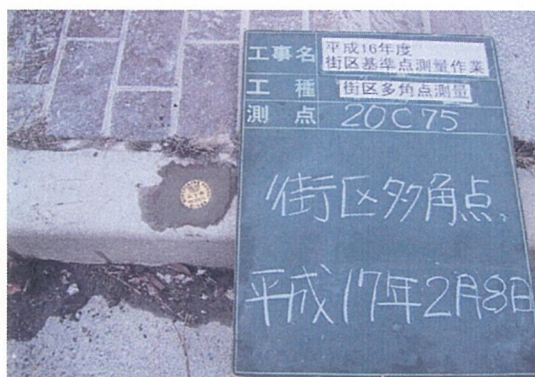 工事名 平成16年度
街区基準点測量作業
工種 街区多角点測量
測点 20C75
街区多角点
平成17年2月8日